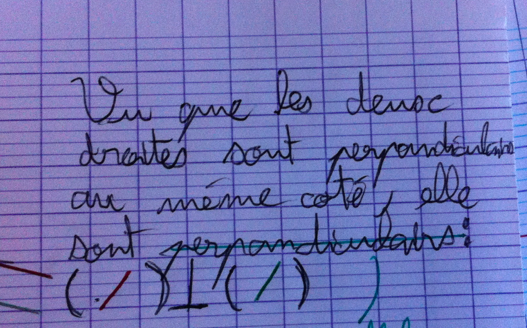 Vu que les deux
droites sont perpandiculaire
au même coté, elle
sont perpandiculairs:
(/)⊥(/)